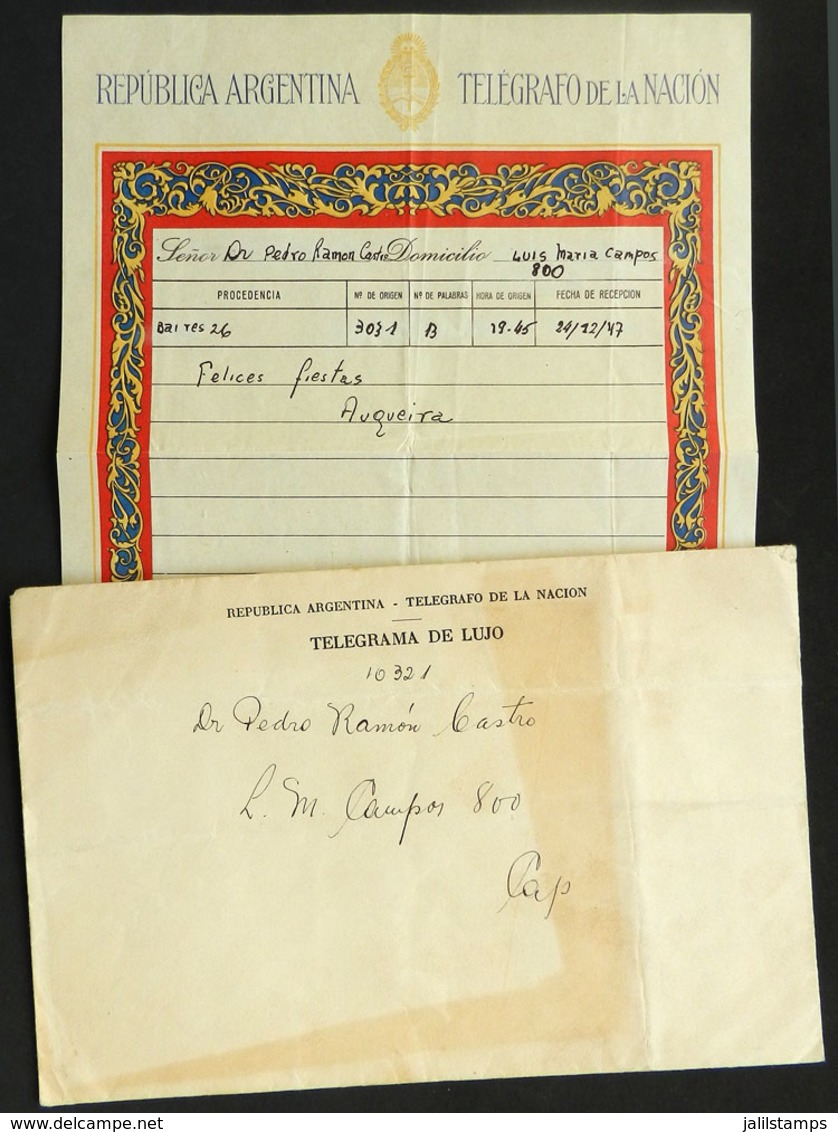 REPÚBLICA ARGENTINA TELÉGRAFO DE LA NACIÓN
Señor Dr Pedro Ramon Castro Domicilio Luis Maria Campos
800
PROCEDENCIA Nº DE ORIGEN Nº DE PALABRAS HORA DE ORIGEN FECHA DE RECEPCION
Baires 26 3031 13 19-45 24/12/47
Felices fiestas
Auqueira
REPUBLICA ARGENTINA - TELEGRAFO DE LA NACION
TELEGRAMA DE LUJO
10321
Dr Pedro Ramón Castro
L. M. Campos 800
Cap
jalilstamps